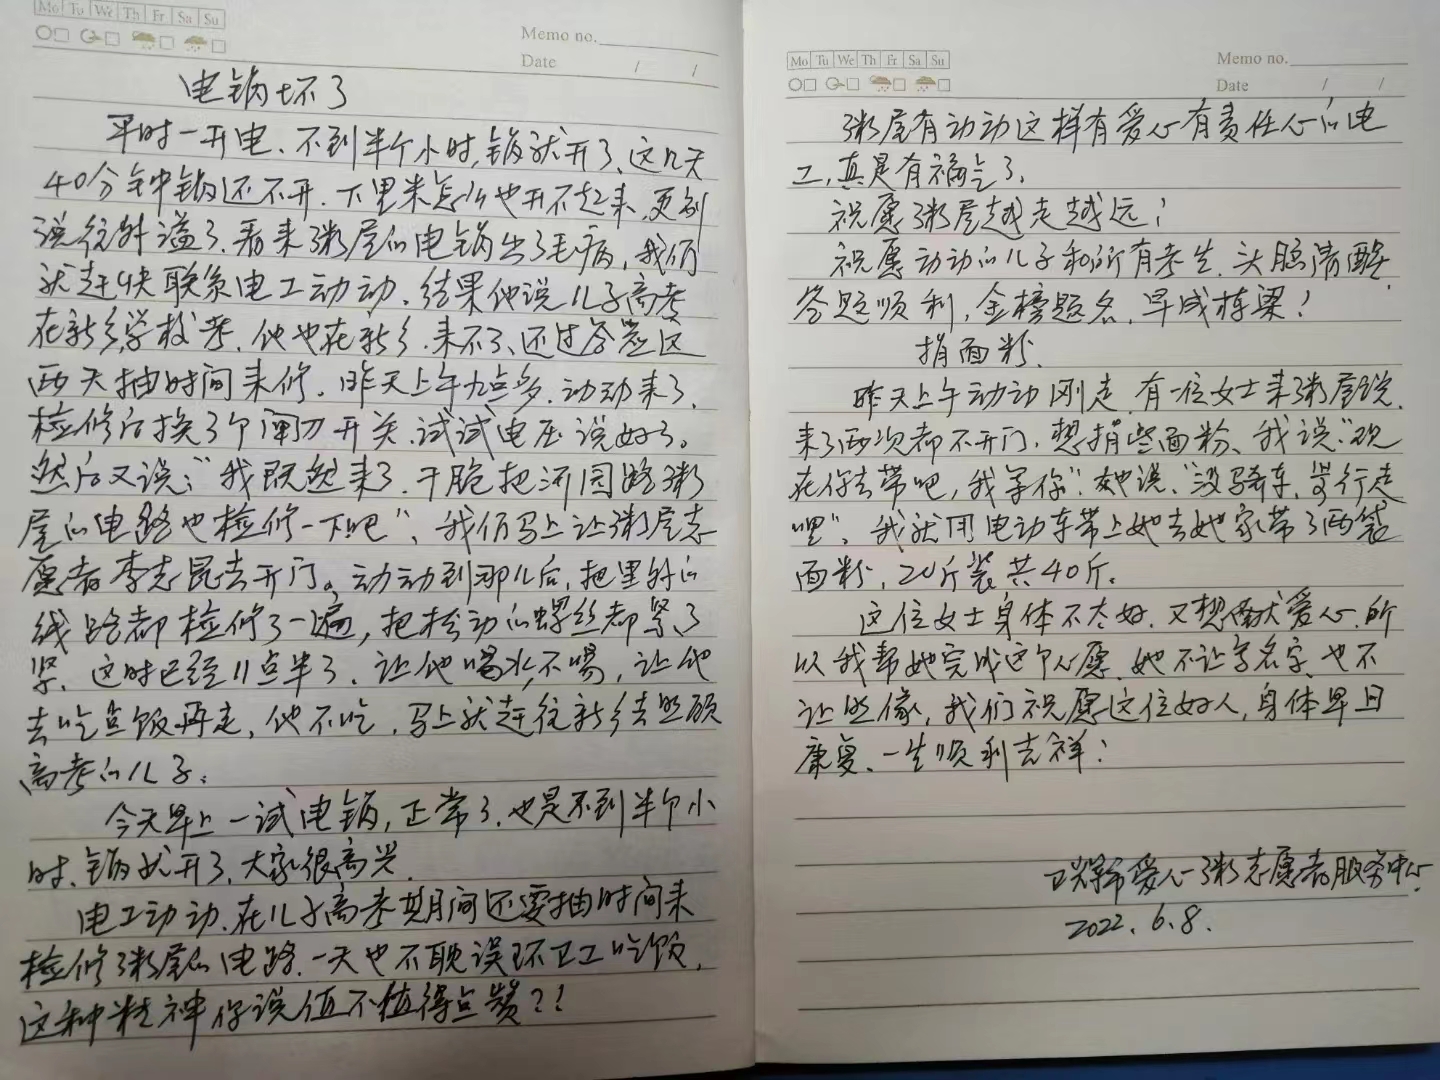 Mo Tu We Th Fr Sa Su
Memo no.
Date / /
电锅坏了
平时一开电、不到半个小时,锅就开了、这几天
40分钟锅还不开.下里米怎么也开不起来,更别
说往外溢了.看来粥屋的电锅出了毛病,我们
就赶快联系电工动动.结果他说儿子高考
在新乡学校考.他也在新乡.来不了、还过答应这
两天抽时间来修.昨天上午九点多.动动来了.
检修后换了个闸刀开关.试试电压说好了。
然后又说:“我既然来了.干脆把河园路粥
屋的电路也检修一下吧”、我们马上让粥屋志
愿者李志昆去开门。动动到那儿后,把里外的
线路都检修了一遍,把松动的螺丝都紧了
紧.这时已经11点半了.让他喝水,不喝,让他
去吃点饭再走,他不吃.马上就赶往新乡去照顾
高考的儿子.
今天早上一试电锅,正常了.也是不到半个小
时、锅就开了,大家很高兴.
电工动动.在儿子高考期间还要抽时间来
检修粥屋的电路.一天也不耽误环卫工吃饭,
这种精神你说值不值得点赞??
Mo Tu We Th Fr Sa Su
Memo no.
Date / /
粥屋有动动这样有爱心有责任心的电
工,真是有福气了.
祝愿粥屋越走越远!
祝愿动动的儿子和所有考生.头脑清醒.
答题顺利,金榜题名.早成栋梁!
捐面粉.
昨天上午动动刚走.有一位女士来粥屋说.
来了两次都不开门.想捐些面粉、我说:“现
在你去带吧,我等你”.她说、“没骑车,步行走
哩”、我就用电动车带上她去她家带了两袋
面粉,20斤装共40斤。
这位女士身体不太好.又想献爱心.所
以我帮她完成这个心愿.她不让写名字.也不
让照像,我们祝愿这位好人,身体早日
康复、一生顺利吉祥!
卫辉市爱心粥志愿者服务中心
2022.6.8.